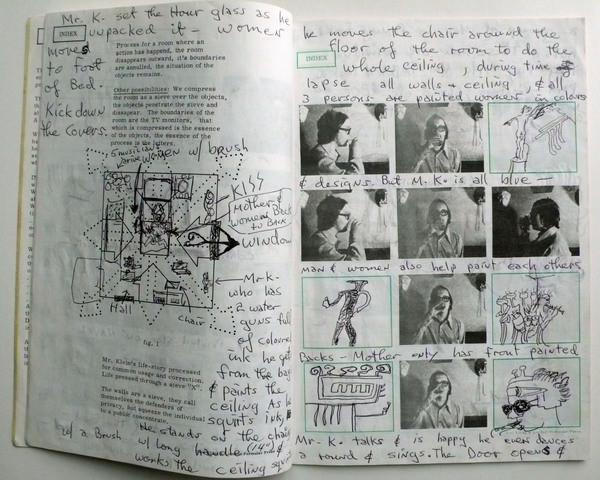 Mr. K. set the Hour glass as he
unpacked it — women
INDEX
moves
to foot
of Bed.
Kick down
the Covers.
Process for a room where an
action has happend, the room
disappears outward, it's boundaries
are annulled, the situation of the
objects remains.
Other possibilities: We compress
the room as a sieve over the objects,
the objects penetrate the sieve and
dissapear. The boundaries of the
room are the TV monitors, that
which is compressed is the essence
of the objects, the essence of the
process is the letters.
women w/ brush
KISS
Mother &
women Back
to BACK
window
Mr. K.
who has
2 water
guns full
of colored
ink he get
from the bag
& paints the
ceiling As he
squirts ink,
Hall
chair
fig. 1
Mr. Klein's life-story processed
for common usage and correction.
Life pressed through a sieve "X".
The walls are a sieve, they call
themselves the defenders of
privacy, but squeeze the individual
to a public concentrate.
He stands on the chair
w/ a Brush w/ long handle (14") &
works the ceiling
he moves the chair around the
floor of the room to do the
INDEX
whole ceiling, during time
lapse all walls & ceiling, & all
3 persons are painted women in colors
& designs. But M. K. is all blue —
man & women also help paint each others
Backs — Mother only has front painted
Mr. K. talks & is happy he even dances
around & sings. The Door opens &